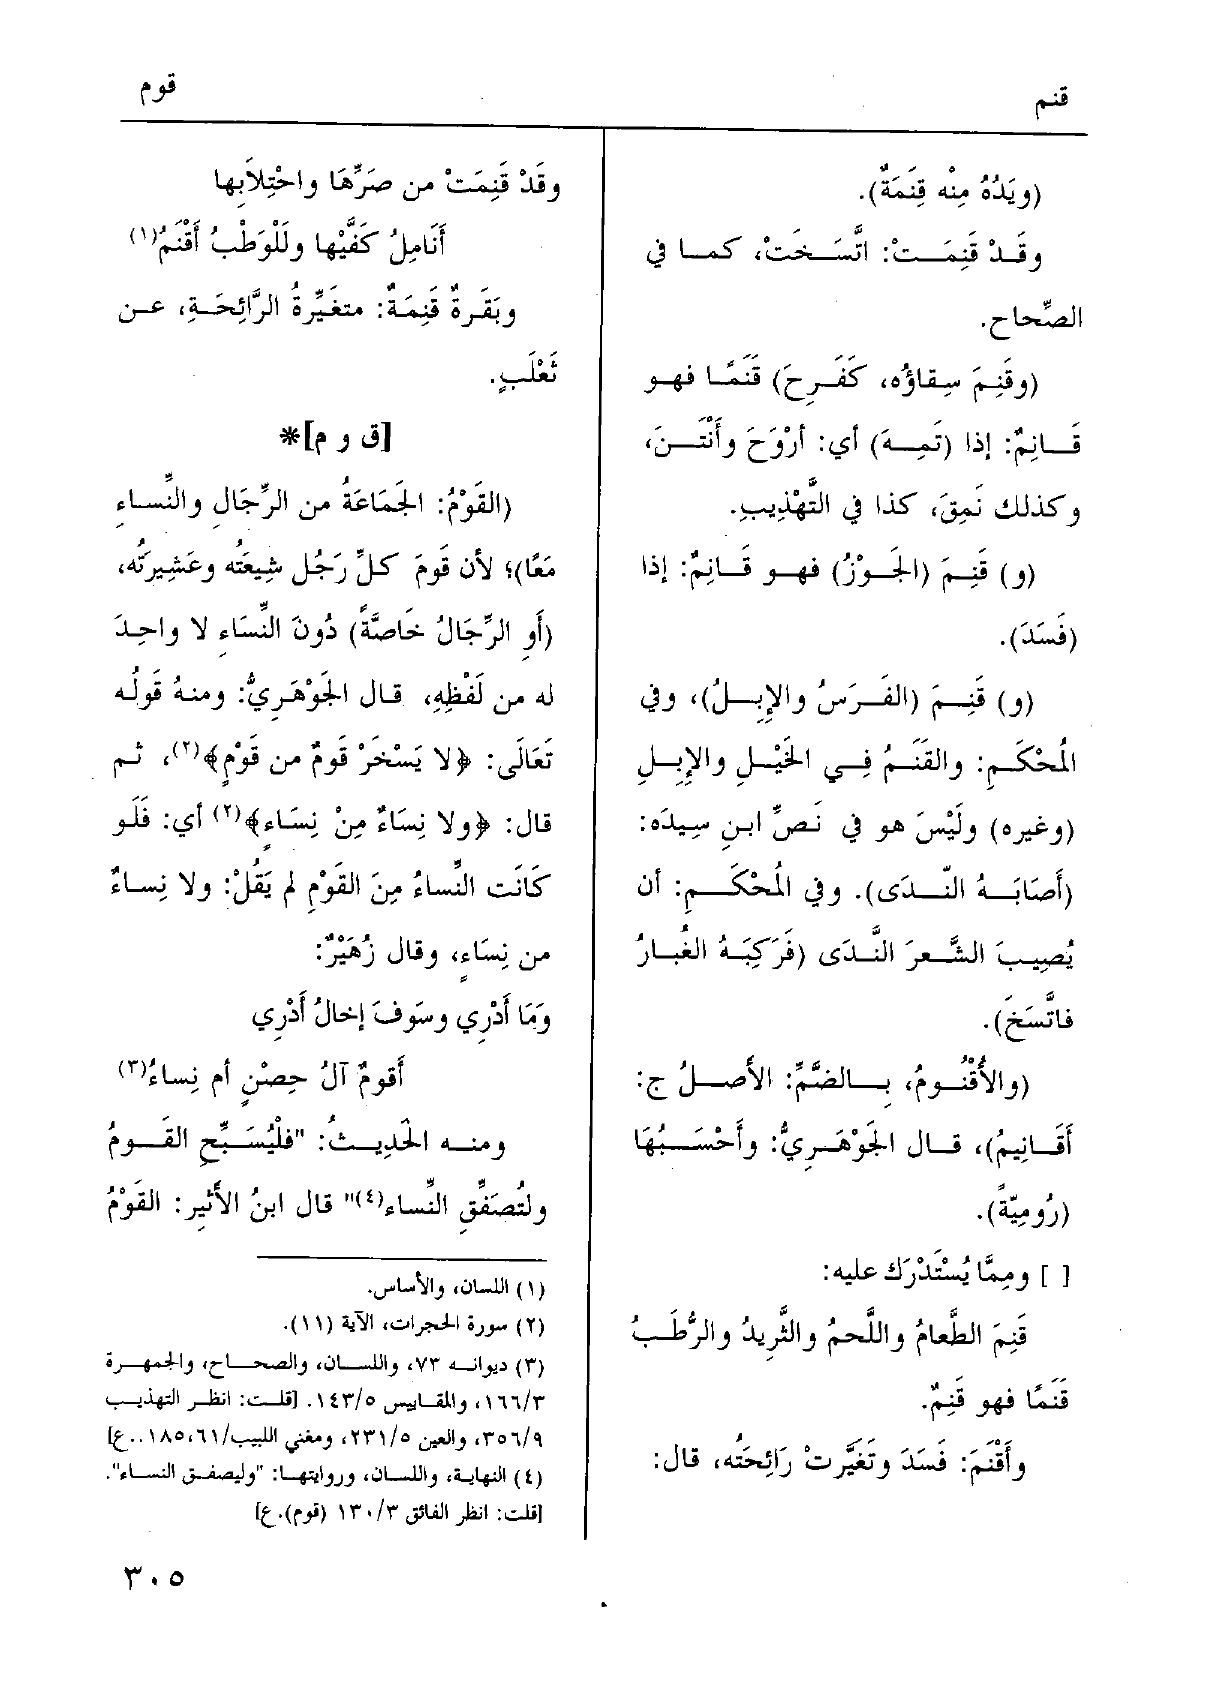 قنم
قوم
(ويَدُهُ مِنْه قِنَمَةٌ).
وقَدْ قَنِمَتْ: اتَّسَخَتْ، كما في
الصِّحاح.
(وقَنِمَ سِقاؤُه، كَفَرِحَ) قَنَمًا فهو
قَانِمٌ: إذا (تَمِهَ) أي: أرْوَحَ وأَنْتَنَ،
وكذلك نَمِقَ، كذا في التَّهْذِيبِ.
(و) قَنِمَ (الجَوْزُ) فهو قَانِمٌ: إذا
(فَسَدَ).
(و) قَنِمَ (الفَرَسُ والإِبِلُ)، وفي
المُحْكَمِ: والقَنَمُ فِي الخَيْلِ والإِبِلِ
(وغيره) ولَيْسَ هو في نَصِّ ابنِ سِيدَه:
(أَصَابَهُ النَّدَى). وفي المُحْكَمِ: أن
يُصِيبَ الشَّعرَ النَّدَى (فَرَكِبَهُ الغُبارُ
فاتَّسَخَ).
(والأُقْنُومُ، بِالضَّمِّ: الأصلُ ج:
أَقَانِيمُ)، قال الجَوْهَرِيُّ: وأَحْسَبُهَا
(رُومِيَّةً).
[ ] ومِمَّا يُسْتَدْرَك عليه:
قَنِمَ الطَّعامُ واللَّحمُ والثَّرِيدُ والرُّطَبُ
قَنَمًا فهو قَنِمٌ.
وأَقْنَمَ: فَسَدَ وتَغَيَّرَت رَائِحتُه، قال:
وقَدْ قَنِمَتْ من صَرِّهَا واحْتِلاَبِها
أَنَامِلُ كَفَّيْها ولَلْوَطْبُ أَقْنَمُ(١)
وبَقَرةٌ قَنِمَةٌ: متغَيِّرةُ الرَّائِحَةِ، عن
ثَعْلَبٍ.
[ق و م]*
(القَوْمُ: الجَمَاعَةُ من الرِّجَالِ والنِّساءِ
مَعًا)؛ لأن قَومَ كلِّ رَجُل شِيعَتُه وعَشِيرَتُه،
(أَوِ الرِّجَالُ خَاصَّةً) دُونَ النِّسَاءِ لا واحِدَ
له من لَفْظِهِ، قال الجَوْهَرِيُّ: ومنهُ قَولُه
تَعَالَى: ﴿لا يَسْخَرْ قَومٌ من قَوْمٍ﴾(٢)، ثم
قال: ﴿ولا نِسَاءٌ مِنْ نِسَاءٍ﴾(٢) أي: فَلَو
كَانَت النِّساءُ مِنَ القَوْمِ لم يَقُلْ: ولا نِساءٌ
من نِسَاءٍ، وقال زُهَيْرٌ:
وَمَا أَدْرِي وسَوفَ إخالُ أَدْرِي
أَقومٌ آلُ حِصْنٍ أم نِساءُ(٣)
ومنه الحَدِيثُ: "فلْيُسَبِّحِ القَومُ
ولتُصَفِّقِ النِّساء(٤)" قال ابنُ الأَثِيرِ: القَوْمُ
(١) اللسان، والأساس.
(٢) سورة الحجرات، الآية (١١).
(٣) ديوانه ٧٣، واللسان، والصحاح، والجمهرة
١٦٦/٣، والمقاييس ١٤٣/٥. [قلت: انظر التهذيب
٣٥٦/٩، والعين ٢٣١/٥، ومغني اللبيب/٦١، ١٨٥..ع]
(٤) النهاية، واللسان، وروايتها: "وليصفق النساء".
[قلت: انظر الفائق ١٣٠/٣ (قوم).ع]
٣٠٥